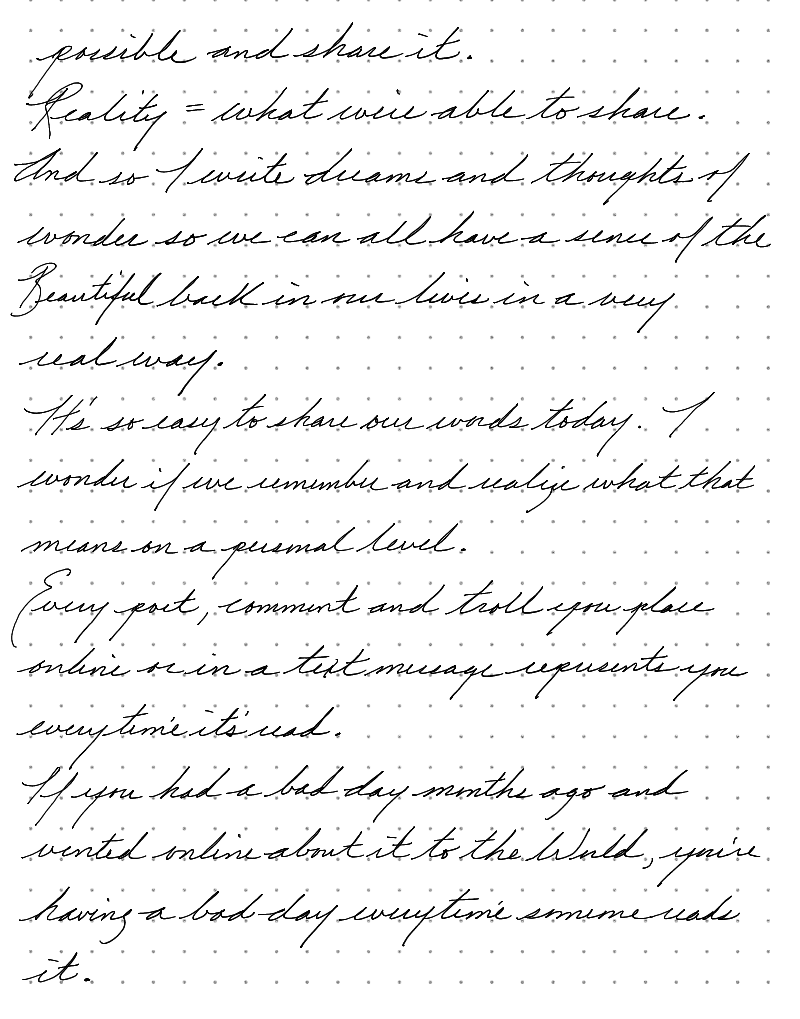 possible and share it.
Reality = what we're able to share.
And so I write dreams and thoughts of
wonder so we can all have a sense of the
Beautiful back in our lives in a very
real way.
It's so easy to share our words today. I
wonder if we remember and realize what that
means on a personal level.
Every post, comment and troll you place
online or in a text message represents you
everytime it's read.
If you had a bad day months ago and
vented online about it to the World, you're
having a bad day everytime someone reads
it.